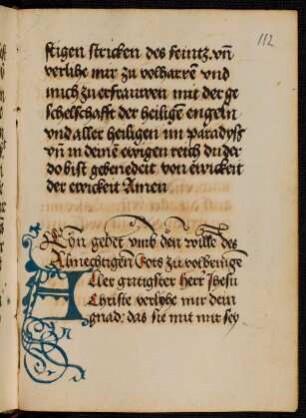 112
stigen stricken des feintz. vñ
verlihe mir zu volharrē vnd
mich zu erfrauwen mit der ge
schelschafft der heiligē engeln
vnd aller heiligen im paradyß
vñ in deinē ewigen reich du der
do bist gebenedeit von ewickeit
der ewickeit Amen
Eyn gebet vmb den wille des
Almechtigen Gots zu volbringē
Aller gutigster herr Jhesu
Christe verlyhe mir dein
gnad: das sie mit mir sey